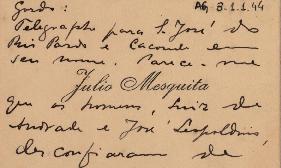 AG 3.1.1.94
Gordo:
Telegrapho para S. José do
Rio Pardo e Caconde em
seu nome. Parece-me
Julio Mesquita
que os homens, Luiz de
Andrade e José Leopoldino,
desconfiaram de